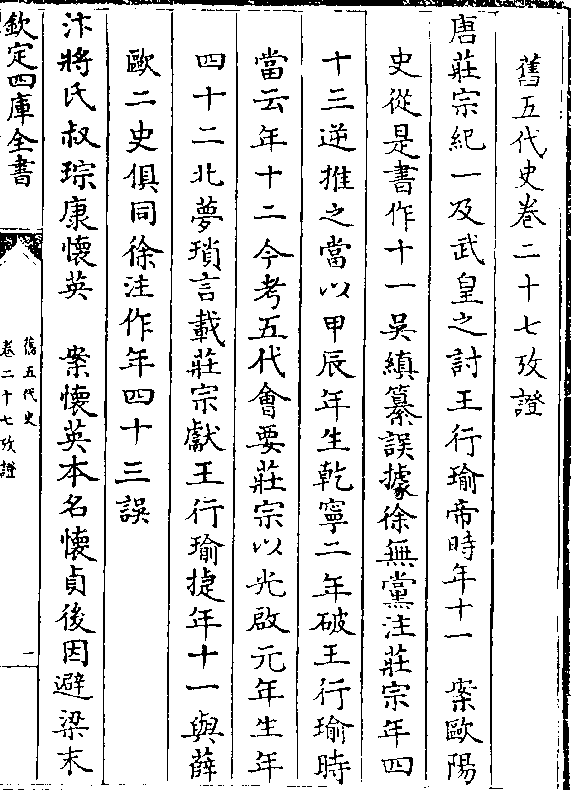 舊五代史卷二十七攷證
唐莊宗紀一及武皇之討王行瑜帝時年十一　案歐陽
史從是書作十一吳縝纂誤據徐無黨注莊宗年四
十三逆推之當以甲辰年生乾寧二年破王行瑜時
當云年十二今考五代會要莊宗以光啟元年生年
四十二北夢瑣言載莊宗獻王行瑜捷年十一與薛
歐二史俱同徐注作年四十三誤
汴將氏叔琮康懷英　案懷英本名懷貞後因避梁末
欽定四庫全書
舊五代史
卷二十七攷證
一